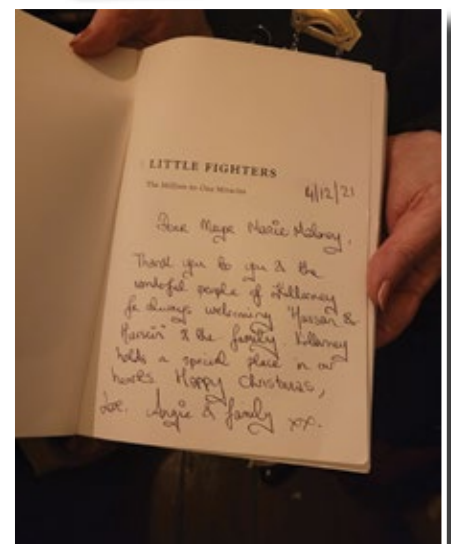 LITTLE FIGHTERS
The Million-to-One Miracles
4/12/21
Dear Mayor Marie Moloney,
Thank you to you & the
wonderful people of Killarney
for always welcoming "Hassan &
Hussein" & the family Killarney
holds a special place in our
hearts. Happy Christmas,
Love. Angie & family xx.